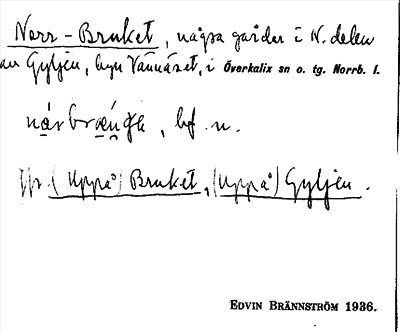 Norr-Bruket, några gårder i N. delen
av Gyljen, byn Vännäset, i Överkalix sn o. tg. Norrb. l.
bf. n.
Jfr. (Uppå) Bruket, (Uppå) Gyljen.
EDVIN BRÄNNSTRÖM 1936.